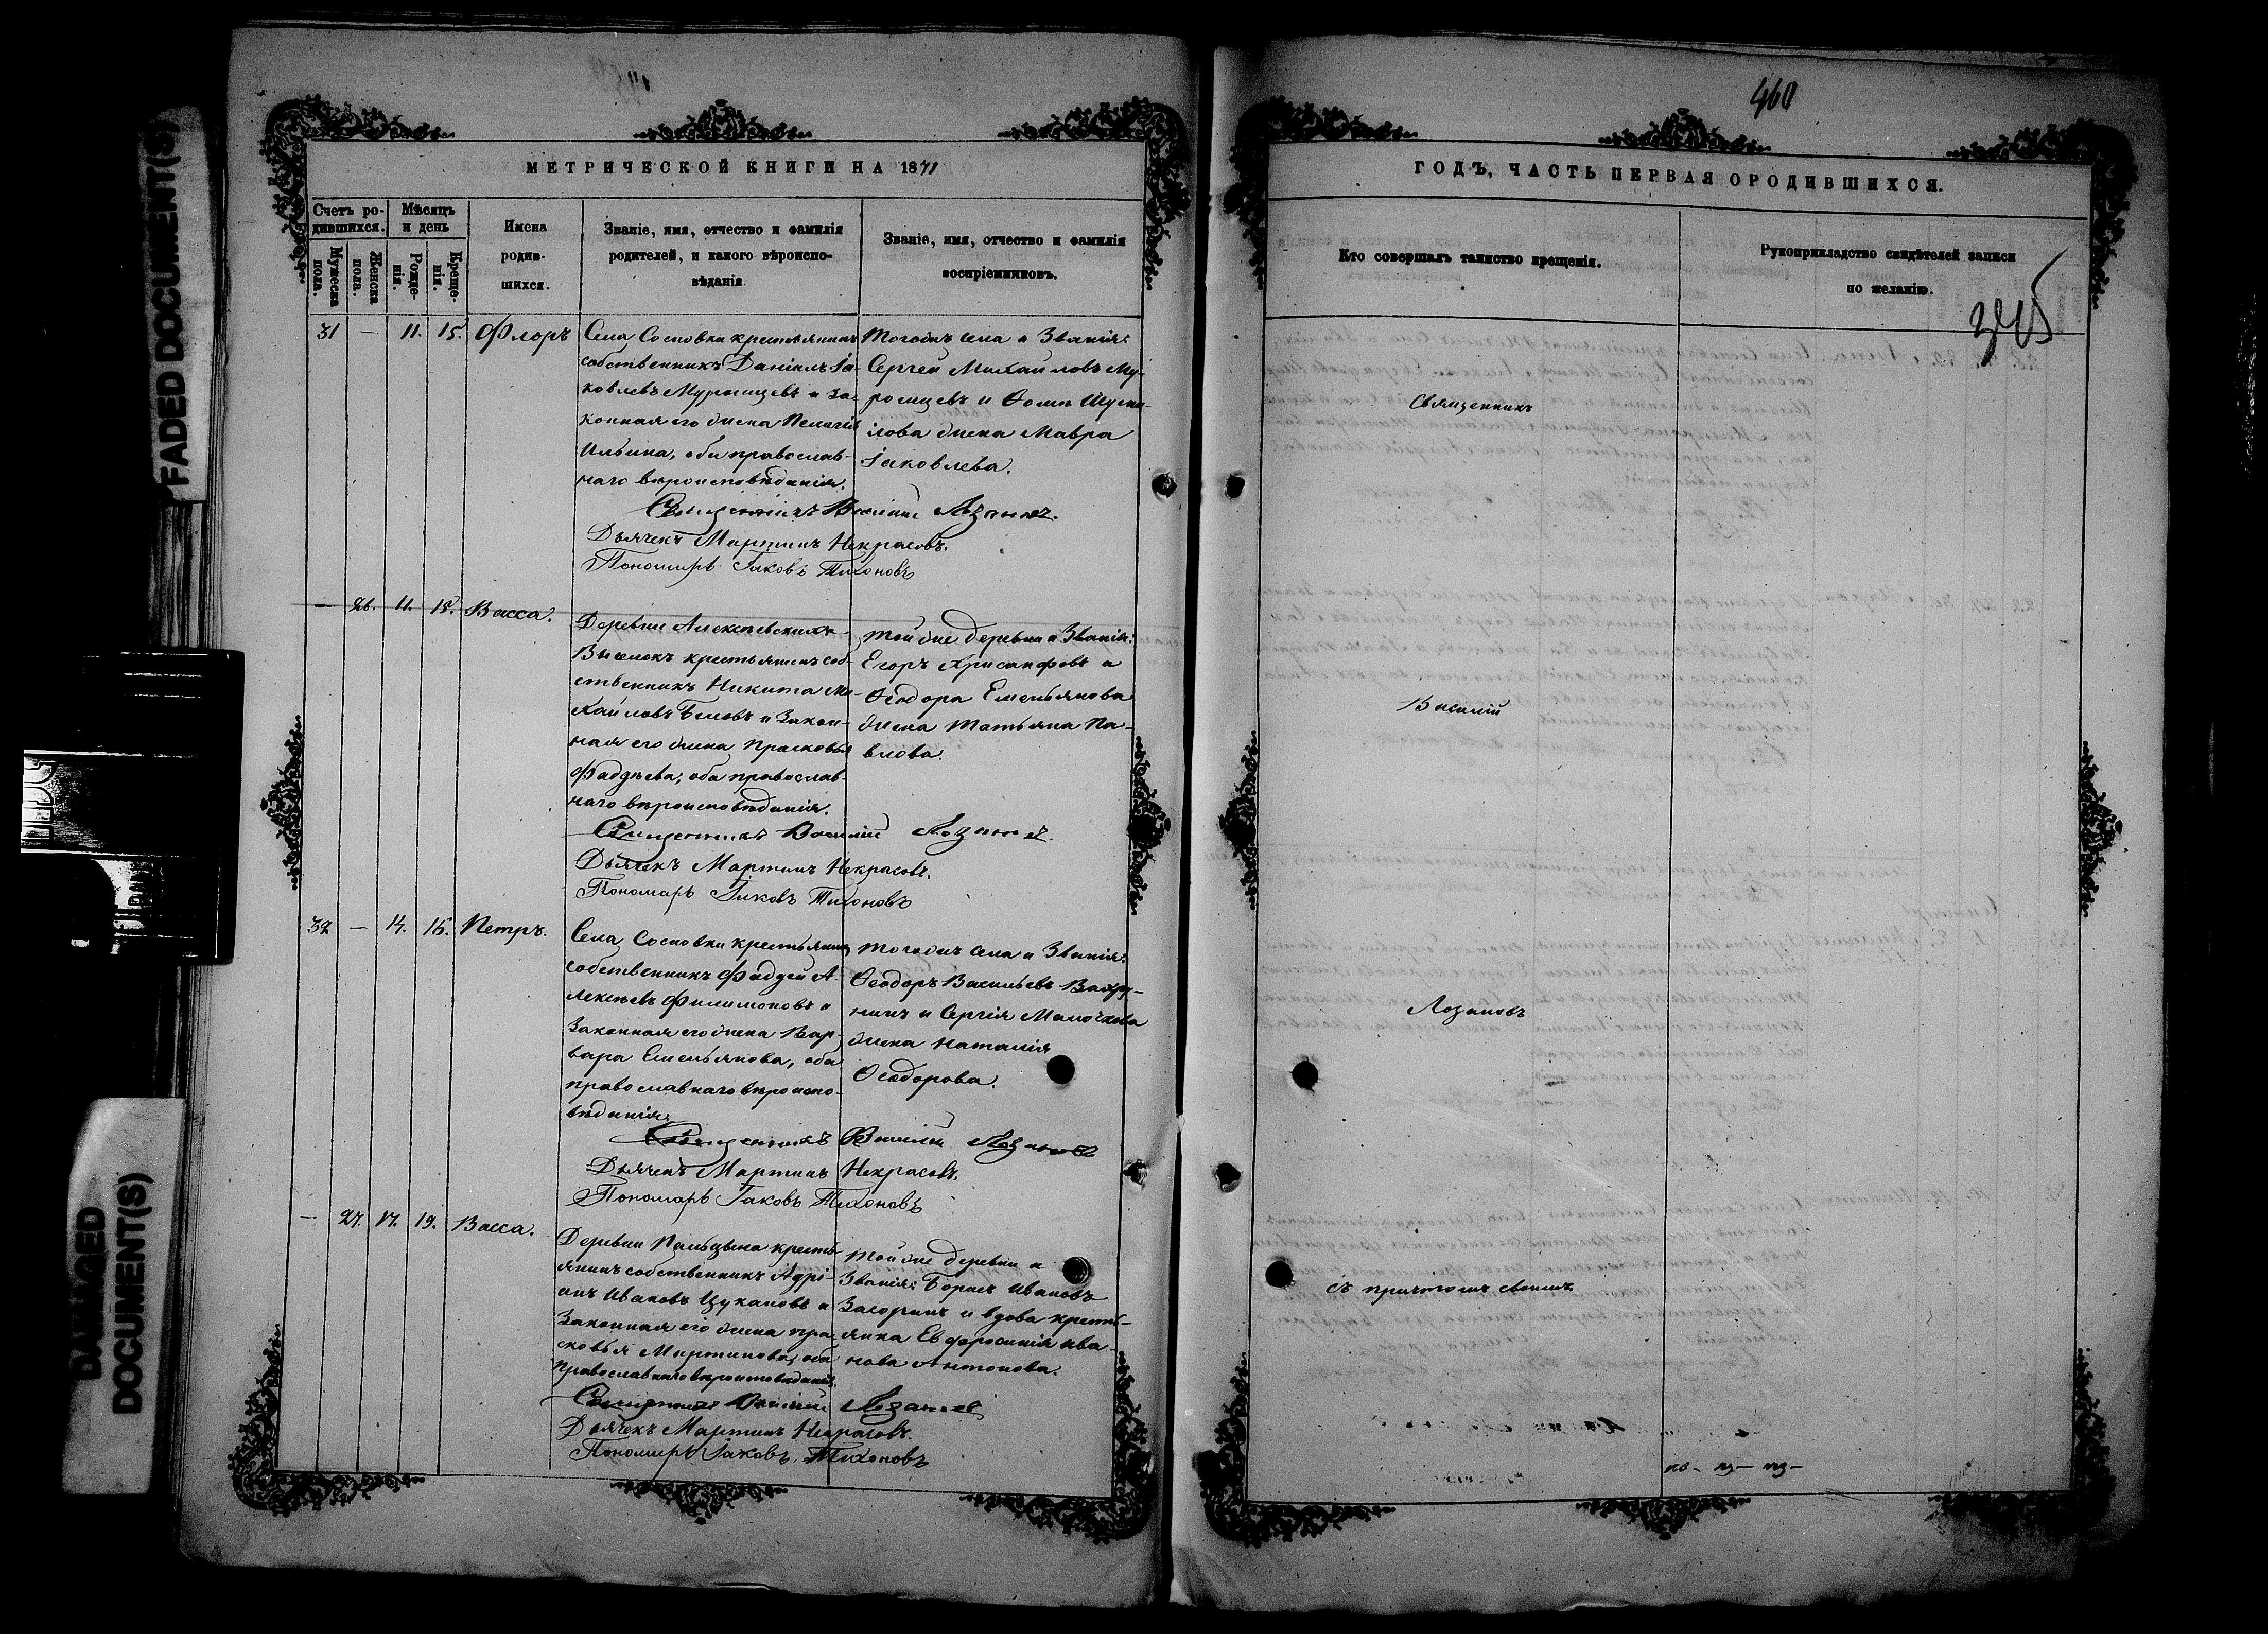 FADED DOCUMENT(S)
DAMAGED
DOCUMENT(S)
МЕТРИЧЕСКОЙ КНИГИ НА 1871
Счетъ ро-
дившихся.
Мѣсяцъ
и день
Мужеска
пола.
Женска
пола.
Рожде-
нія.
Креще-
нія.
Имена
родив-
шихся.
Званіе, имя, отчество и фамилія
родителей, и какого вѣроиспо-
вѣданія
Званіе, имя, отчество и фамилія
воспріемниковъ.
31 — 11. 15. Флоръ
Села Сосновки крестьянинъ
собственникъ Даніилъ Іа-
ковлевъ Муромцевъ и за-
конная его жена Пелагія
Ильина, оба православ-
наго вѣроисповѣданія.
Тогожъ села и званія:
Сергей Михайловъ Му-
ромцевъ и Фомы
жена Мавра
Іаковлева.
Священникъ Василій Лозановъ.
Дьячекъ Мартинъ Некрасовъ.
Пономарь Іаковъ Тихоновъ
— 26. 11. 15. Васса.
Деревни Алексеевскихъ
Выселокъ крестьянинъ соб-
ственникъ Никита Ми-
хайловъ Беловъ и закон-
ная его жена Прасковья
Фаддѣева, оба православ-
наго вѣроисповѣданія.
Той же деревни и званія:
Егоръ Хрисанфовъ и
Ѳеодора Емельянова
жена Татьяна Па-
влова.
Священникъ Василій Лозановъ.
Дьячекъ Мартинъ Некрасовъ.
Пономарь Іаковъ Тихоновъ
32 — 14. 16. Петръ.
Села Сосновки крестьянинъ
собственникъ Фаддей А-
лексѣевъ Филимоновъ и
законная его жена Вар-
вара Емельянова, оба
православнаго вѣроиспо-
вѣданія.
Тогожъ села и званія:
Ѳеодоръ Васильевъ Вахру-
нинъ и Сергія Мамочкова
жена Наталія
Ѳеодорова.
Священникъ Василій Лозановъ
Дьячекъ Мартинъ Некрасовъ.
Пономарь Іаковъ Тихоновъ
— 27. 17. 19. Васса.
Деревни Пальцына кресть-
янинъ собственникъ Адрі-
анъ Ивановъ Цукановъ и
законная его жена Пра-
сковья Мартинова, оба
православнаго вѣроисповѣданія.
Той же деревни и
званія: Борисъ Ивановъ
Загоринъ и вдова кресть-
янка Евфросинія Ива-
нова Антонова.
Священникъ Василій Лозановъ
Дьячекъ Мартинъ Некрасовъ.
Пономарь Іаковъ Тихоновъ
460
ГОДЪ, ЧАСТЬ ПЕРВАЯ О РОДИВШИХСЯ.
Кто совершалъ таинство крещенія.
Рукоприкладство свидѣтелей записи
по желанію.
Священникъ
Василій
Лозановъ
съ причтомъ своимъ.